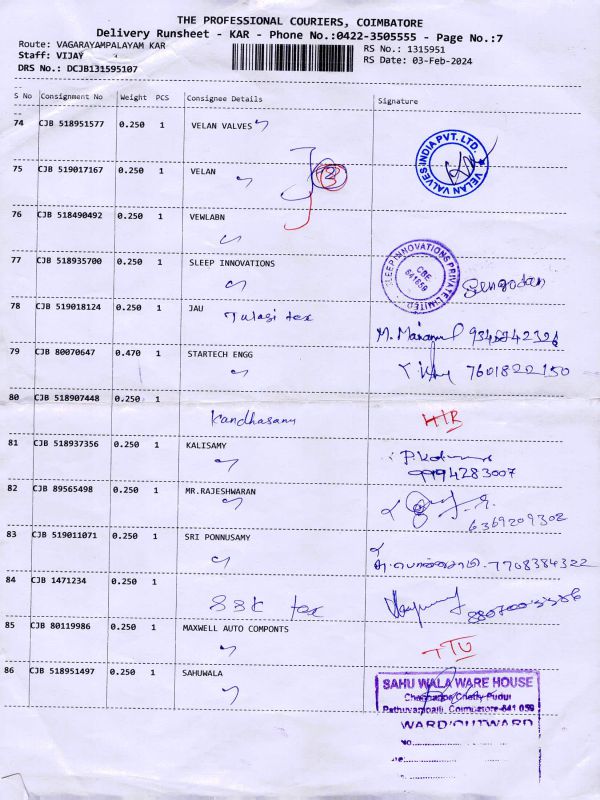 THE PROFESSIONAL COURIERS, COIMBATORE
Delivery Runsheet - KAR - Phone No.:0422-3505555 - Page No.:7
Route: VAGARAYAMPALAYAM KAR
RS No.: 1315951
Staff: VIJAY
RS Date: 03-Feb-2024
DRS No.: DCJB131595107
S No Consignment No Weight PCS Consignee Details Signature
74 CJB 518951577 0.250 1 VELAN VALVES
VELAN VALVES INDIA PVT. LTD.
75 CJB 519017167 0.250 1 VELAN
3
76 CJB 518490492 0.250 1 VEWLABN
77 CJB 518935700 0.250 1 SLEEP INNOVATIONS
SLEEP INNOVATIONS PRIVATE LIMITED
CBE
641659
Sengodan
78 CJB 519018124 0.250 1 JAU
Tulasi tex
79 CJB 80070647 0.470 1 STARTECH ENGG
7601822150
80 CJB 518907448 0.250 1
Kandhasamy
81 CJB 518937356 0.250 1 KALISAMY
9994283007
82 CJB 89565498 0.250 1 MR.RAJESHWARAN
6369209302
83 CJB 519011071 0.250 1 SRI PONNUSAMY
7708384322
84 CJB 1471234 0.250 1
SSK tex
85 CJB 80119986 0.250 1 MAXWELL AUTO COMPONTS
TTU
86 CJB 518951497 0.250 1 SAHUWALA
SAHU WALA WARE HOUSE
Chennappa Chetty Pudur
Pathuvampalli, Coimbatore-641 659
WARD/OUTWARD
NO